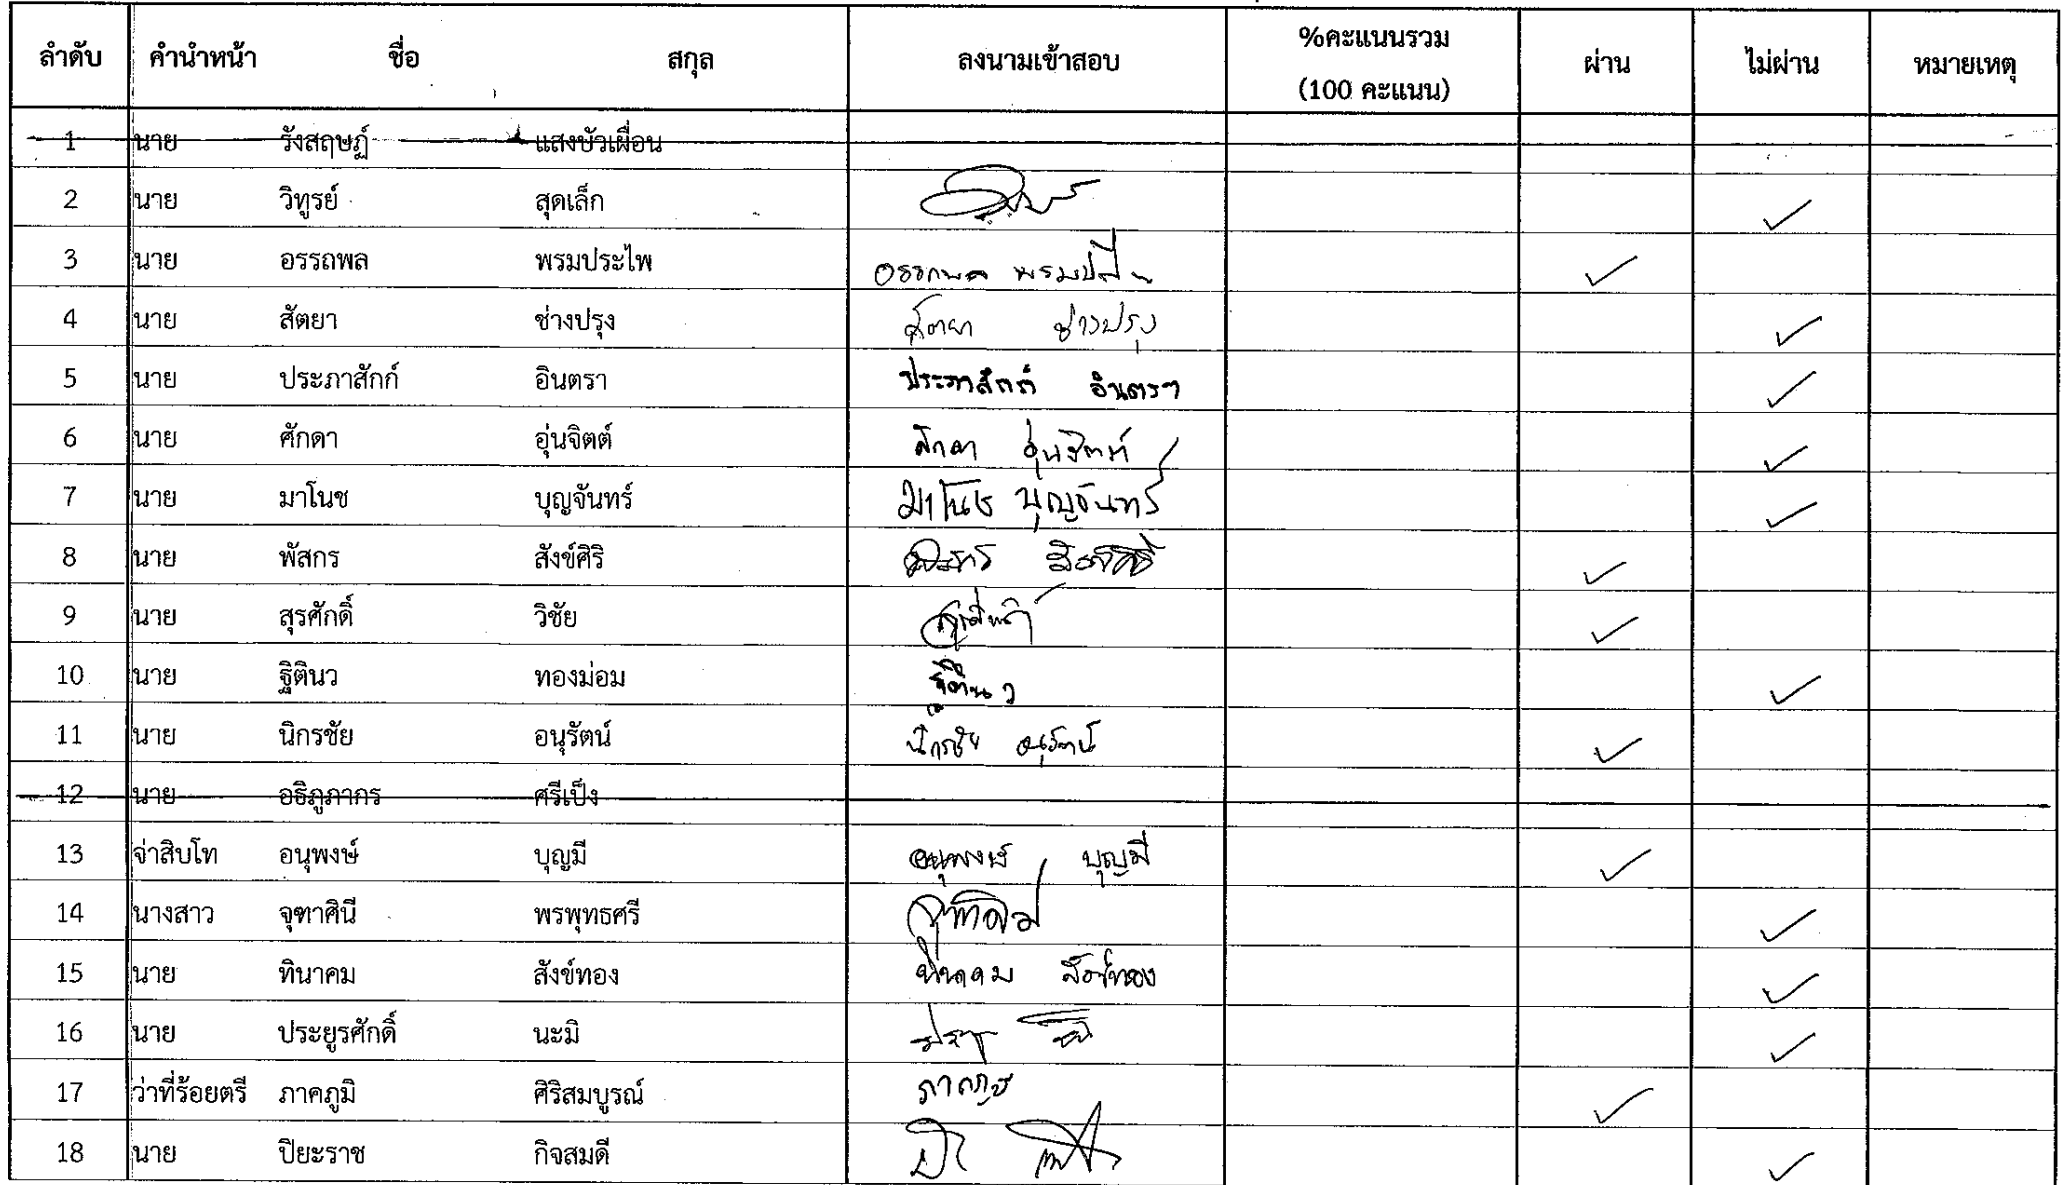 ลำดับ คำนำหน้า ชื่อ สกุล ลงนามเข้าสอบ %คะแนนรวม (100 คะแนน) ผ่าน ไม่ผ่าน หมายเหตุ
1 นาย รังสฤษฏ์ แสงบัวเผื่อน
2 นาย วิทูรย์ สุดเล็ก ✓
3 นาย อรรถพล พรมประไพ อรรถพล ✓
4 นาย สัตยา ช่างปรุง สัตยา ช่างปรุง ✓
5 นาย ประภาสักก์ อินตรา ประภาสักก์ อินตรา ✓
6 นาย ศักดา อุ่นจิตต์ ศักดา อุ่นจิตต์ ✓
7 นาย มาโนช บุญจันทร์ มาโนช บุญจันทร์ ✓
8 นาย พัสกร สังข์ศิริ ✓
9 นาย สุรศักดิ์ วิชัย ✓
10 นาย ฐิตินว ทองม่อม ฐิตินว ✓
11 นาย นิกรชัย อนุรัตน์ นิกรชัย อนุรัตน์ ✓
12 นาย อธิภูภากร ศรีเป็ง
13 จ่าสิบโท อนุพงษ์ บุญมี อนุพงษ์ บุญมี ✓
14 นางสาว จุฑาศินี พรพุทธศรี ✓
15 นาย ทินาคม สังข์ทอง ทินาคม สังข์ทอง ✓
16 นาย ประยูรศักดิ์ นะมิ ✓
17 ว่าที่ร้อยตรี ภาคภูมิ ศิริสมบูรณ์ ภาคภูมิ ✓
18 นาย ปิยะราช กิจสมดี ✓